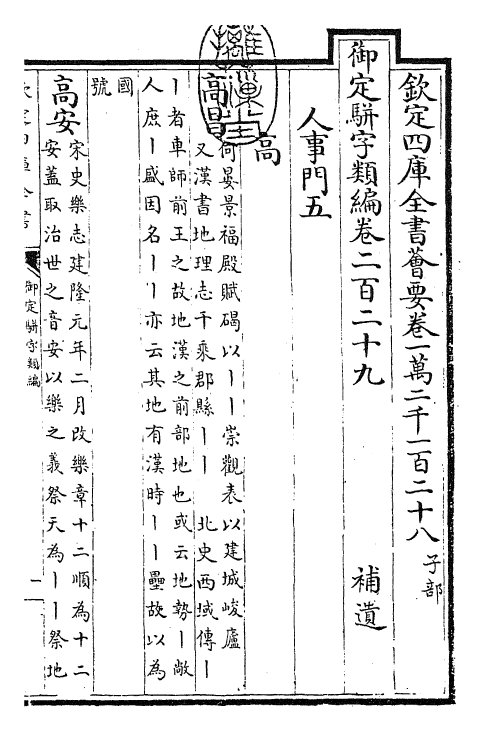 欽定四庫全書薈要卷一萬二千一百二十八 子部
御定駢字類編卷二百二十九 補遺
人事門五
高
高昌 何晏景福殿賦碣以〡〡崇觀表以建城峻廬
又漢書地理志千乘郡縣〡〡 北史西域傳〡
〡者車師前王之故地漢之前部地也或云地勢〡敞
人庶〡盛因名〡〡亦云其地有漢時〡〡壘故以為
國
號
高安 宋史樂志建隆元年二月改樂章十二順為十二
安蓋取治世之音安以樂之義祭天為〡〡祭地
御定駢字類編
一